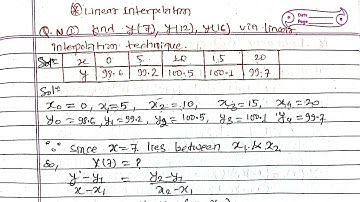 Date
Page
⊛ Linear Interpolation
Q.N① find y(7), y(12), y(16) via linear
interpolation technique.
Solⁿ: x 0 5 10 15 20
y 98.6 99.2 100.5 100.1 99.7
Solⁿ
x₀ = 0, x₁ = 5, x₂ = 10, x₃ = 15, x₄ = 20
y₀ = 98.6, y₁ = 99.2, y₂ = 100.5, y₃ = 100.1 y₄ = 99.7
∵ since x = 7 lies between x₁ & x₂
So, y(7) = ?
y - y₁ = y₂ - y₁
x - x₁ x₂ - x₁